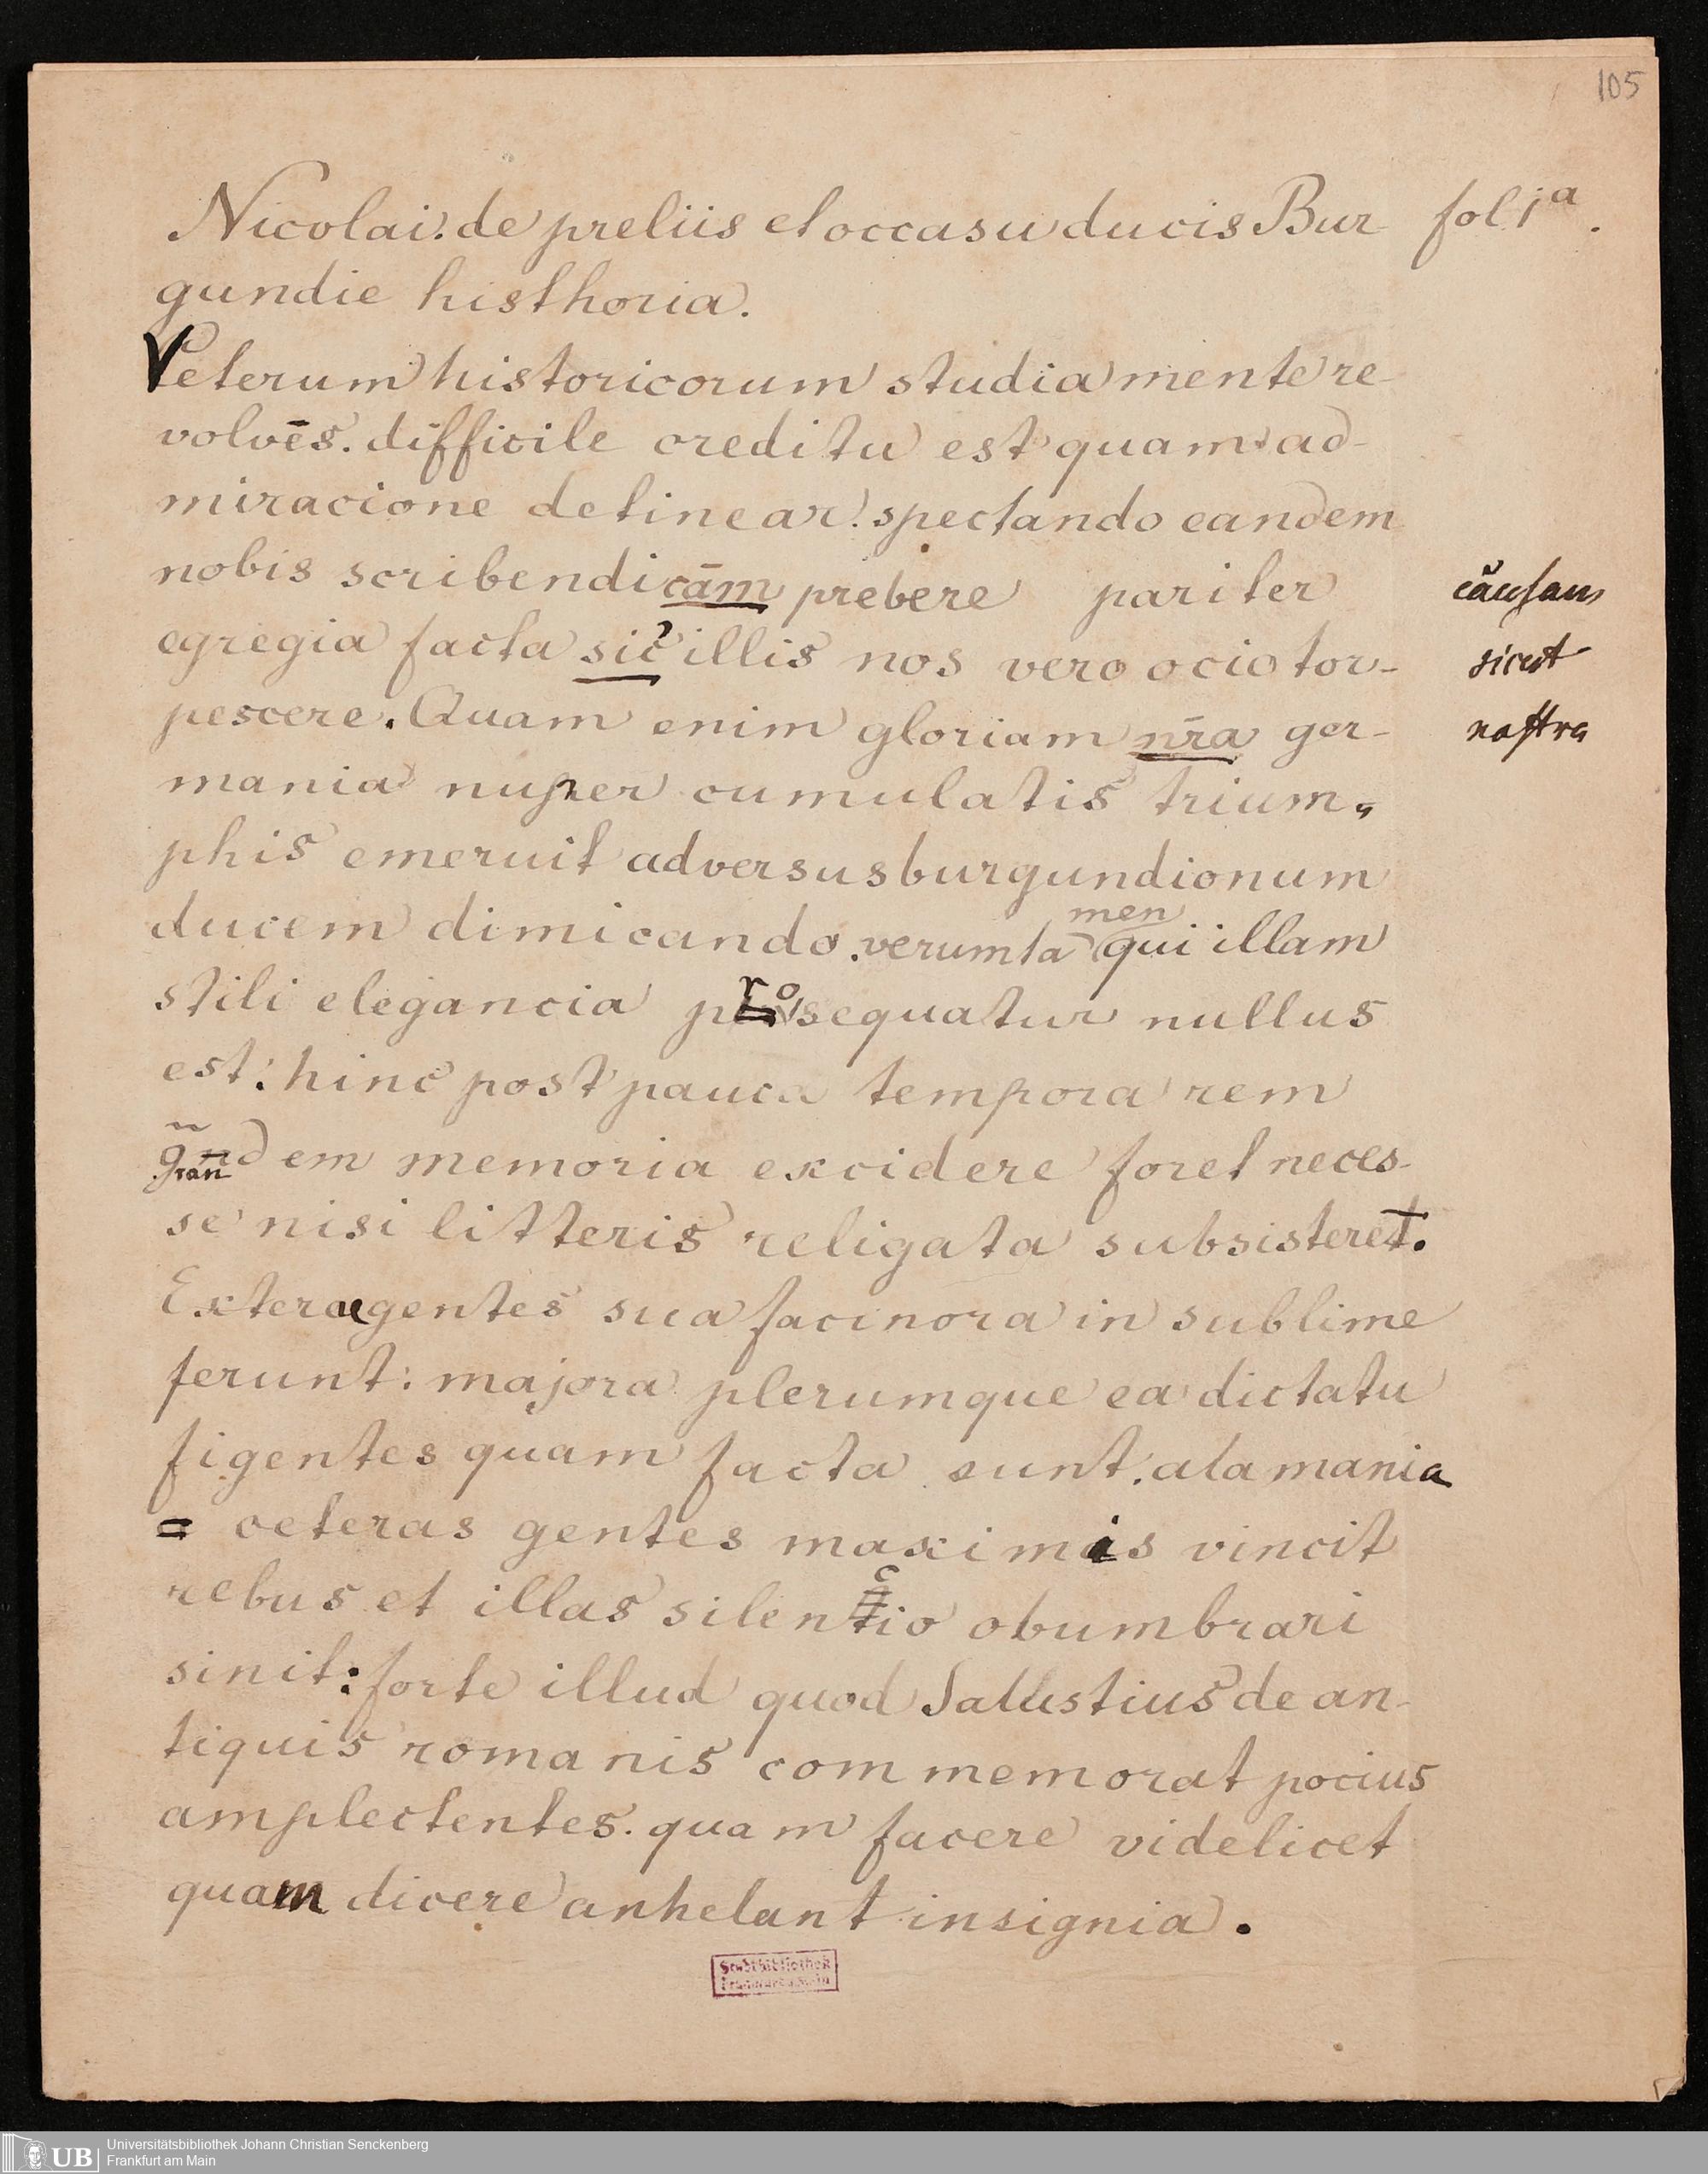 105
Nicolai. de preliis et occasu ducis Bur- fol 1a.
gundie histhoria.
Veterum historicorum studia mente re-
volvēs. difficile creditu est quam ad-
miracione detinear. spectando eandem
nobis scribendi cām prebere pariter causam
egregia facta sic̉ illis nos vero ocio tor- sicut
pescere. Quam enim gloriam nr̄a ger- nostra
mania nuper cumulatis trium-
phis emeruit adversus burgundionum
ducem dimicando. verumtamen qui illam
stili elegancia prosequatur nullus
est: hinc post pauca tempora rem
grandem memoria excidere foret neces-
se nisi litteris religata subsisteret.
Extere gentes sua facinora in sublime
ferunt: majora plerumque ea dictatu
figentes quam facta sunt: alamania
ceteras gentes maximis vincit
rebus et illas silencio obumbrari
sinit: forte illud quod Salustius de an-
tiquis romanis commemorat pocius
amplectentes. quam facere videlicet
quam dicere anhelant insignia.
Stadtbibliothek
Frankfurt a. Main
UB Universitätsbibliothek Johann Christian Senckenberg
Frankfurt am Main